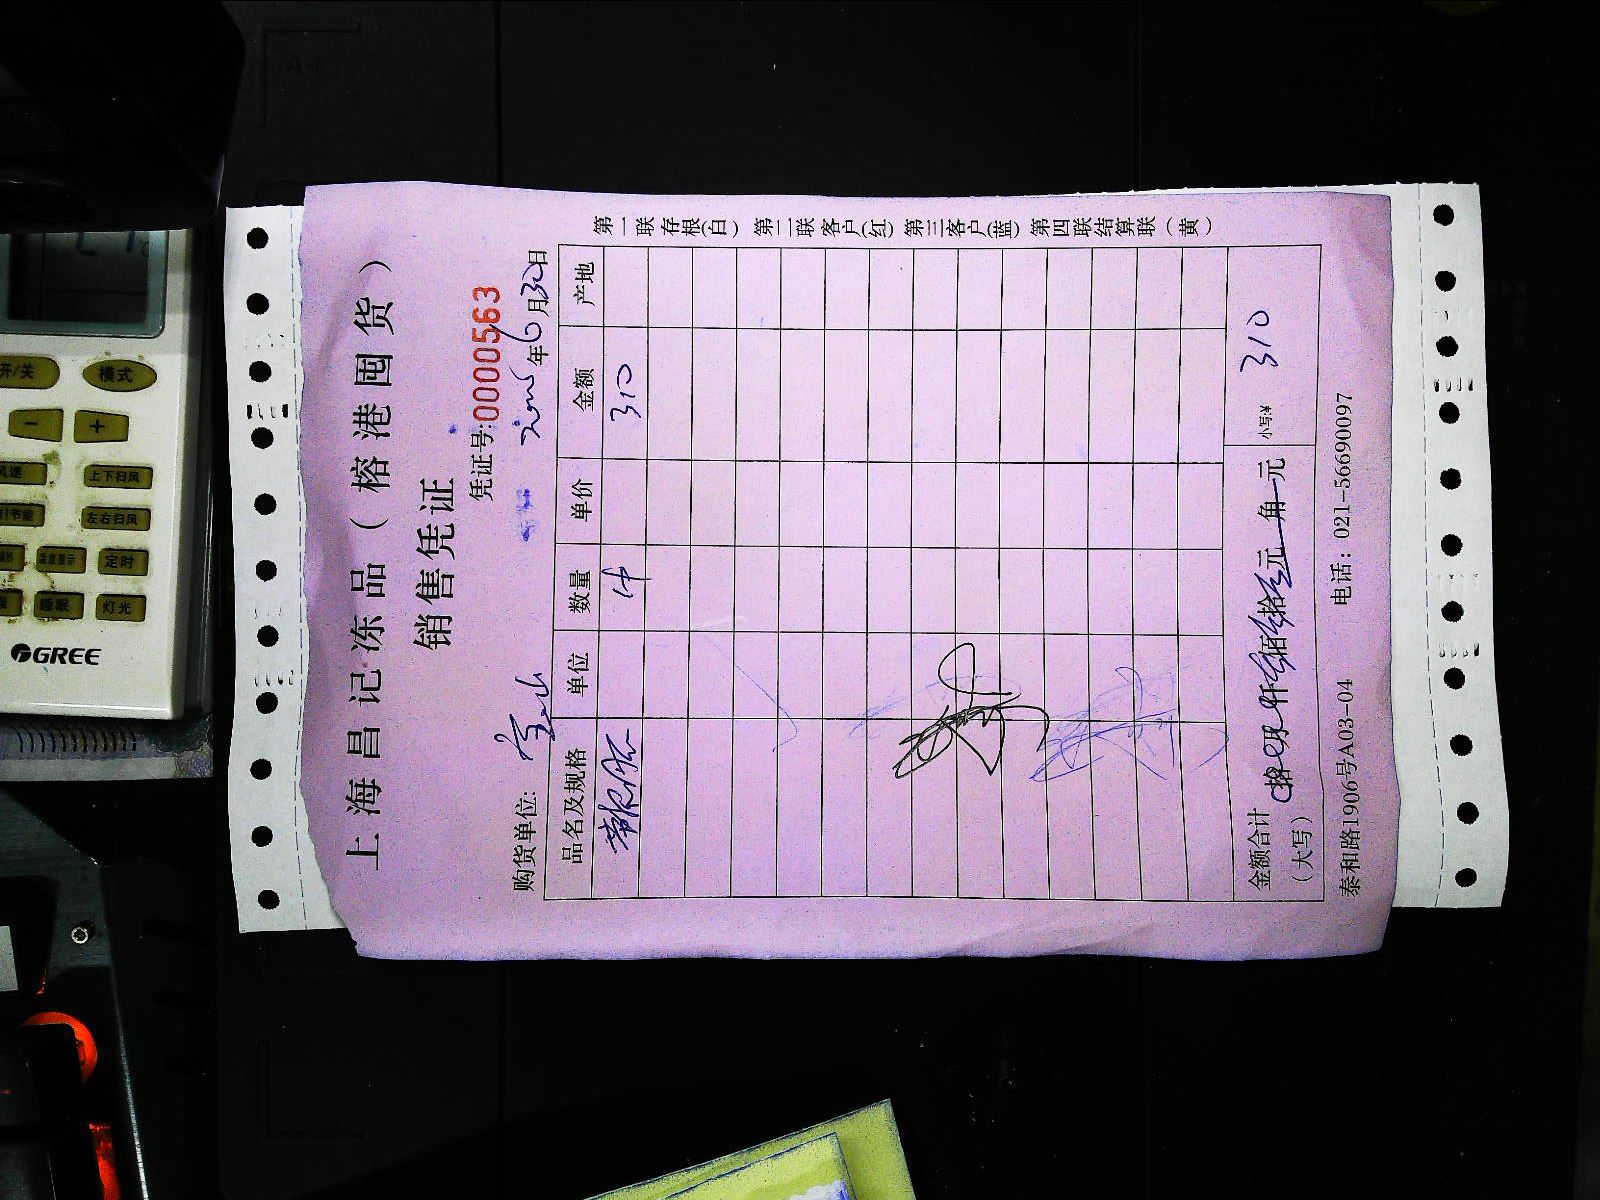 上海昌记冻品（榕港囤货）
销售凭证
凭证号:0000563
购货单位:
2025年6月30日
品名及规格 单位 数量 单价 金额 产地
1件 310
金额合计（大写） 拾 万 仟 佰 拾 元 角 元 小写:¥ 310
泰和路1906号A03-04 电话：021-56690097
第一联存根(白) 第二联客户(红) 第三客户(蓝) 第四联结算联（黄）
开/关 模式
- +
风速 上下扫风
节能 左右扫风
温度显示 定时
睡眠 灯光
GREE